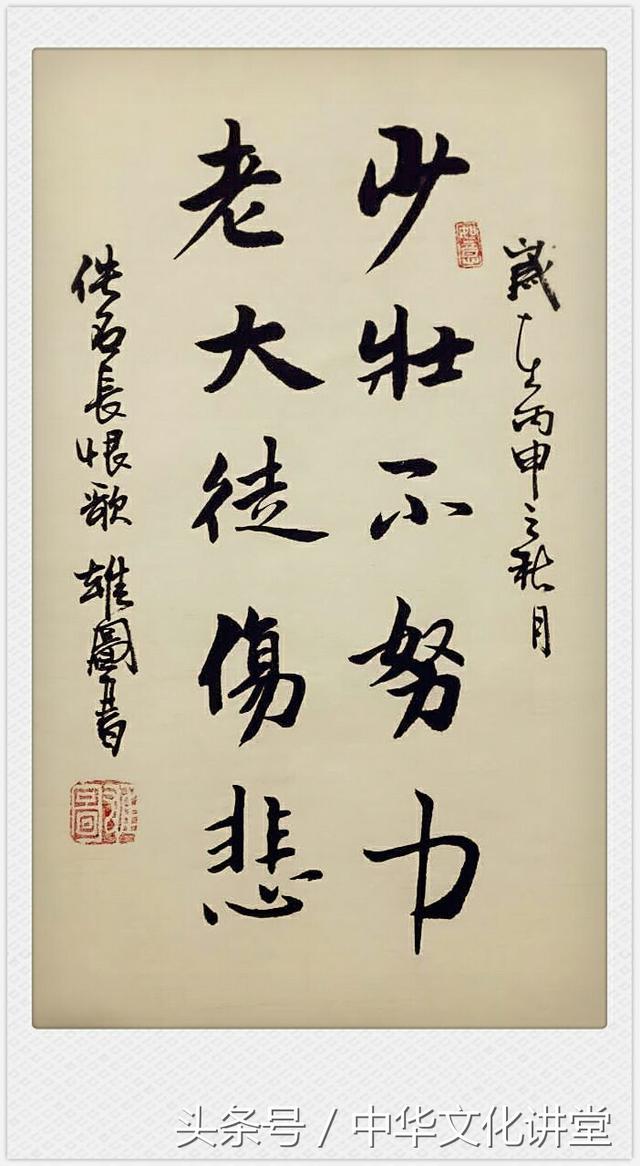 歲在丙申之秋月
如意
少壯不努力
老大徒傷悲
佚名長恨歌 雄圖書
雄圖
头条号 / 中华文化讲堂